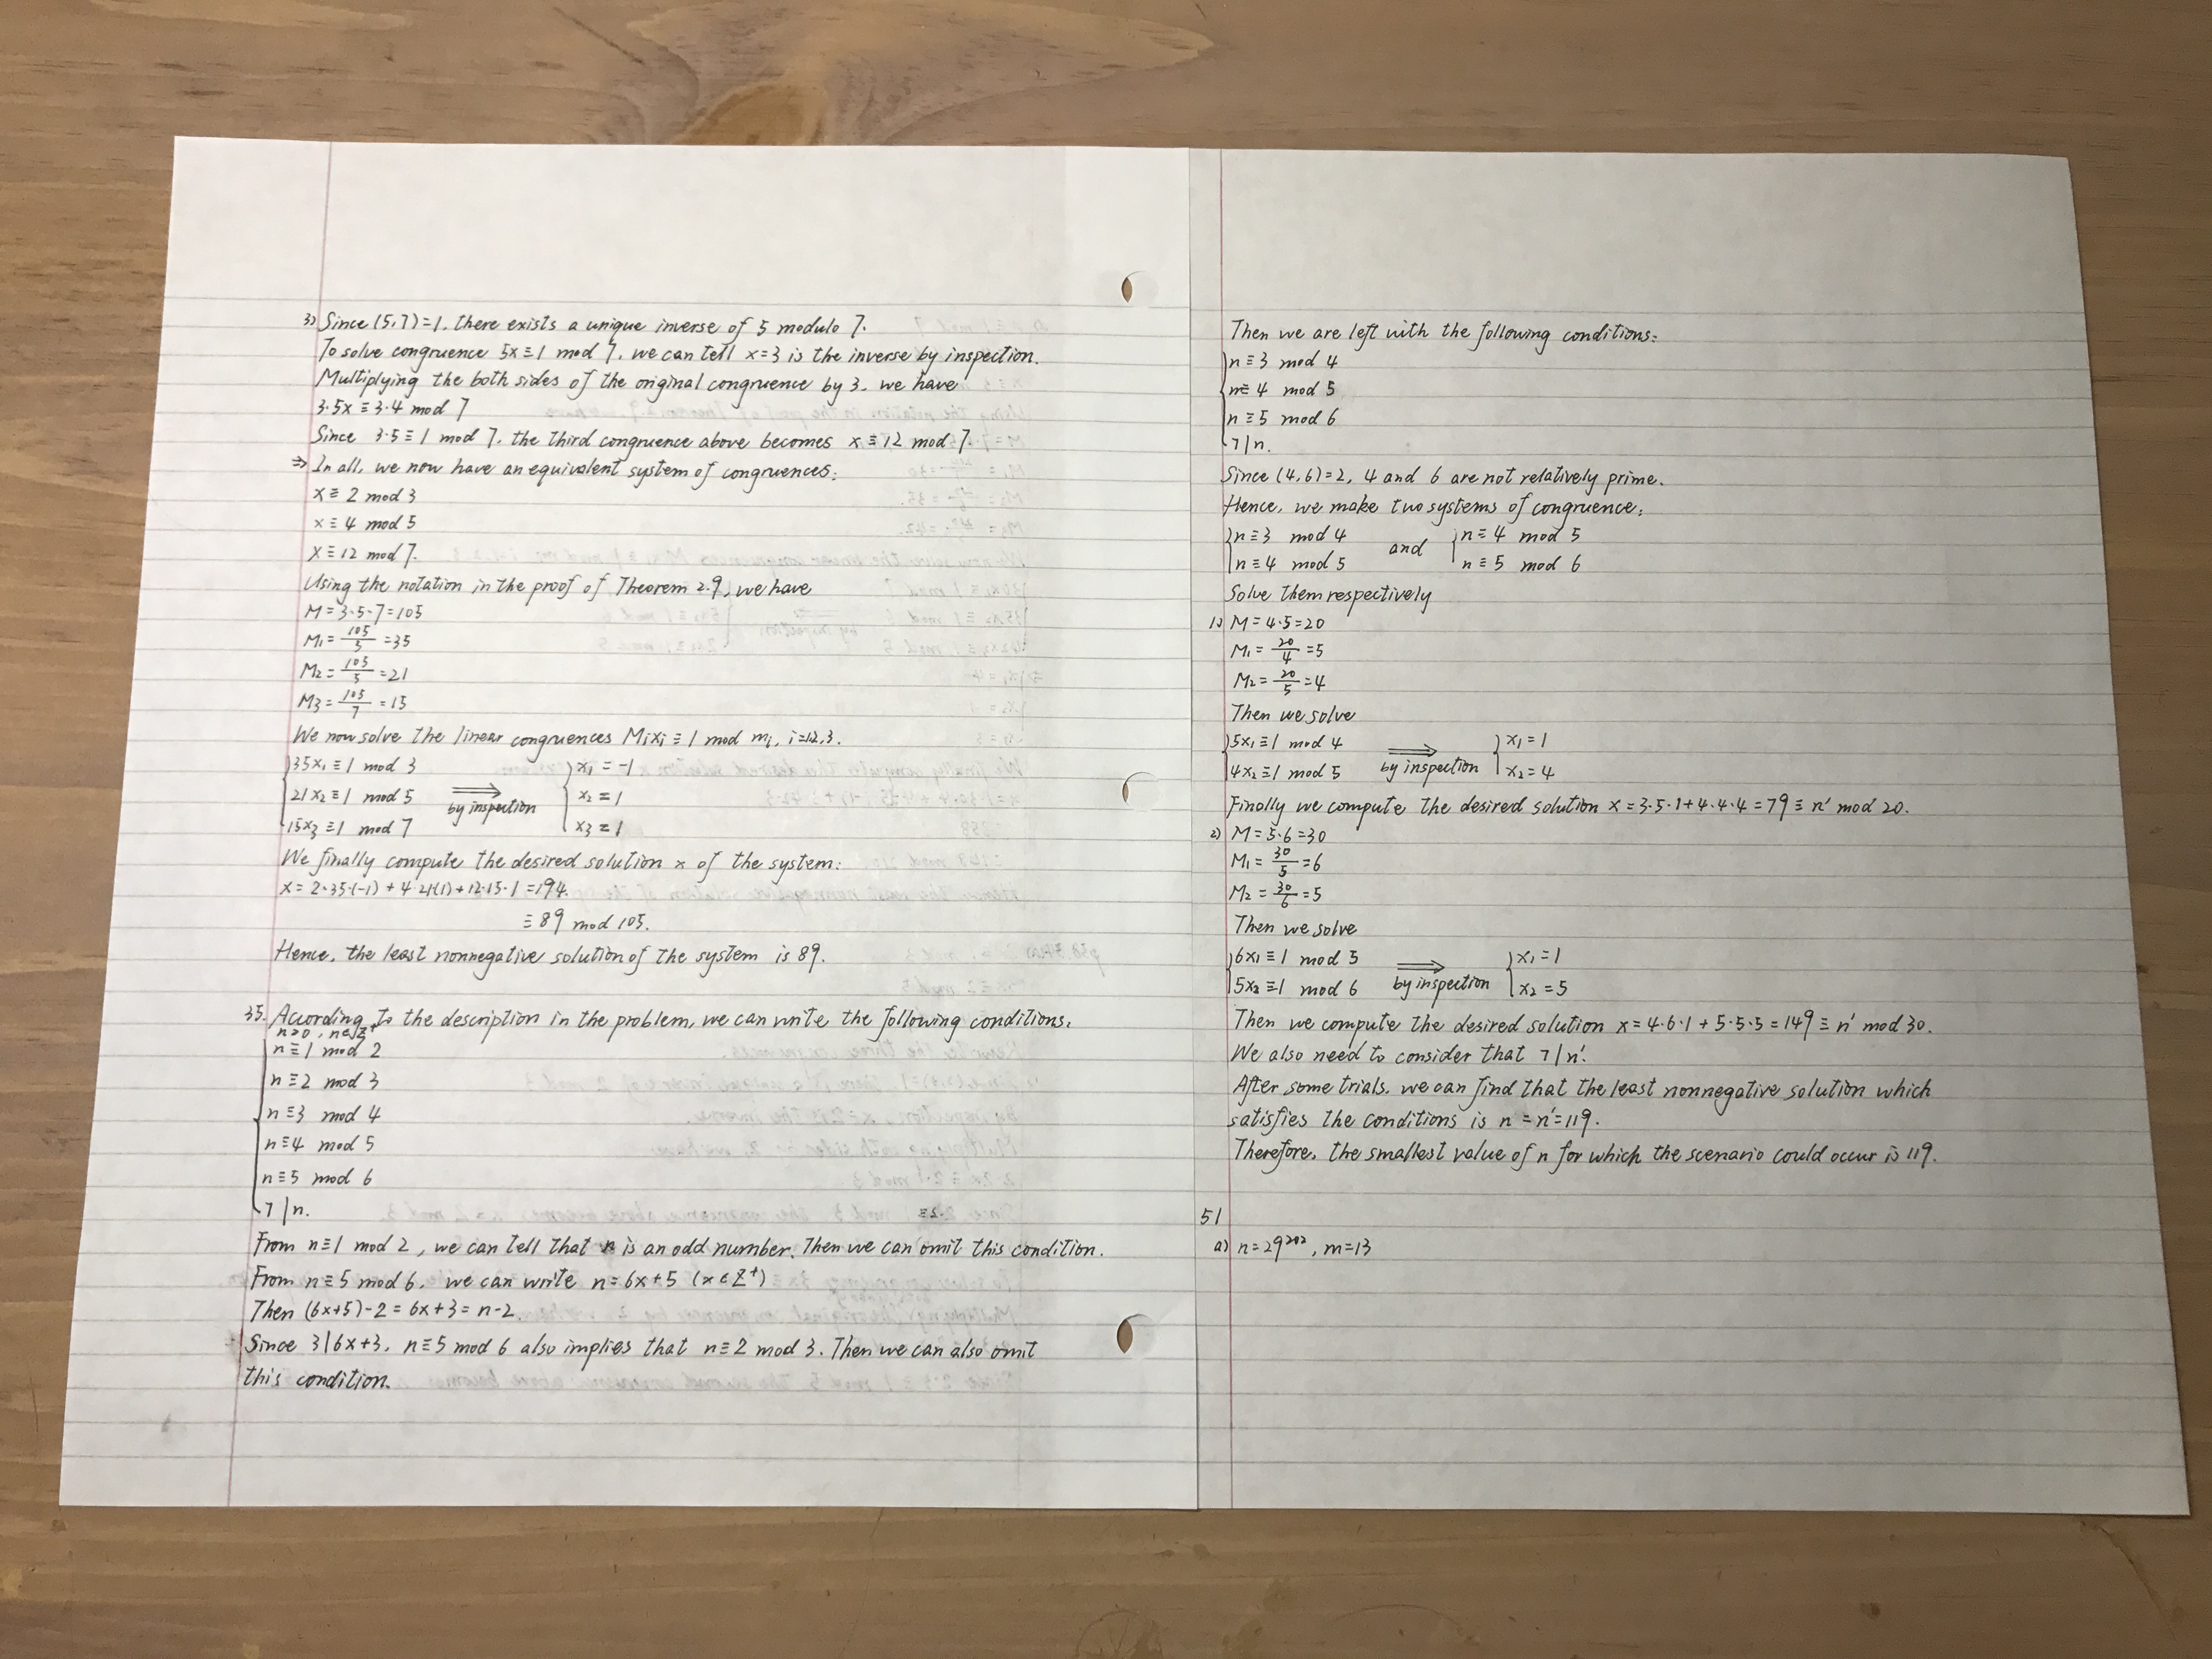 3) Since (5,7)=1, there exists a unique inverse of 5 modulo 7.
To solve congruence 5x≡1 mod 7, we can tell x=3 is the inverse by inspection.
Multiplying the both sides of the original congruence by 3, we have
3·5x≡3·4 mod 7
Since 3·5≡1 mod 7, the third congruence above becomes x≡12 mod 7.
⇒ In all, we now have an equivalent system of congruences:
x≡2 mod 3
x≡4 mod 5
x≡12 mod 7.
Using the notation in the proof of Theorem 2.9, we have
M=3·5·7=105
M1=105/3=35
M2=105/5=21
M3=105/7=15
We now solve the linear congruences Mixi≡1 mod mi, i=1,2,3.
35x1≡1 mod 3 x1=-1
21x2≡1 mod 5 ⇒ by inspection x2=1
15x3≡1 mod 7 x3=1
We finally compute the desired solution x of the system:
x=2·35·(-1)+4·21(1)+12·15·1=194.
≡89 mod 105.
Hence, the least nonnegative solution of the system is 89.
35. According to the description in the problem, we can write the following conditions.
n>0, n∈Z+
n≡1 mod 2
n≡2 mod 3
n≡3 mod 4
n≡4 mod 5
n≡5 mod 6
7|n.
From n≡1 mod 2, we can tell that n is an odd number. Then we can omit this condition.
From n≡5 mod 6, we can write n=6x+5 (x∈Z+)
Then (6x+5)-2=6x+3=n-2.
Since 3|6x+3, n≡5 mod 6 also implies that n≡2 mod 3. Then we can also omit
this condition.
Then we are left with the following conditions:
n≡3 mod 4
n≡4 mod 5
n≡5 mod 6
7|n.
Since (4,6)=2, 4 and 6 are not relatively prime.
Hence, we make two systems of congruence:
n≡3 mod 4 and n≡4 mod 5
n≡4 mod 5 n≡5 mod 6
Solve them respectively
1) M=4·5=20
M1=20/4=5
M2=20/5=4
Then we solve
5x1≡1 mod 4 ⇒ x1=1
4x2≡1 mod 5 by inspection x2=4
Finally we compute the desired solution x=3·5·1+4·4·4=79≡n' mod 20.
2) M=5·6=30
M1=30/5=6
M2=30/6=5
Then we solve
6x1≡1 mod 5 ⇒ x1=1
5x2≡1 mod 6 by inspection x2=5
Then we compute the desired solution x=4·6·1+5·5·5=149≡n' mod 30.
We also need to consider that 7|n'.
After some trials, we can find that the least nonnegative solution which
satisfies the conditions is n=n'=119.
Therefore, the smallest value of n for which the scenario could occur is 119.
51
a) n=29^202, m=13